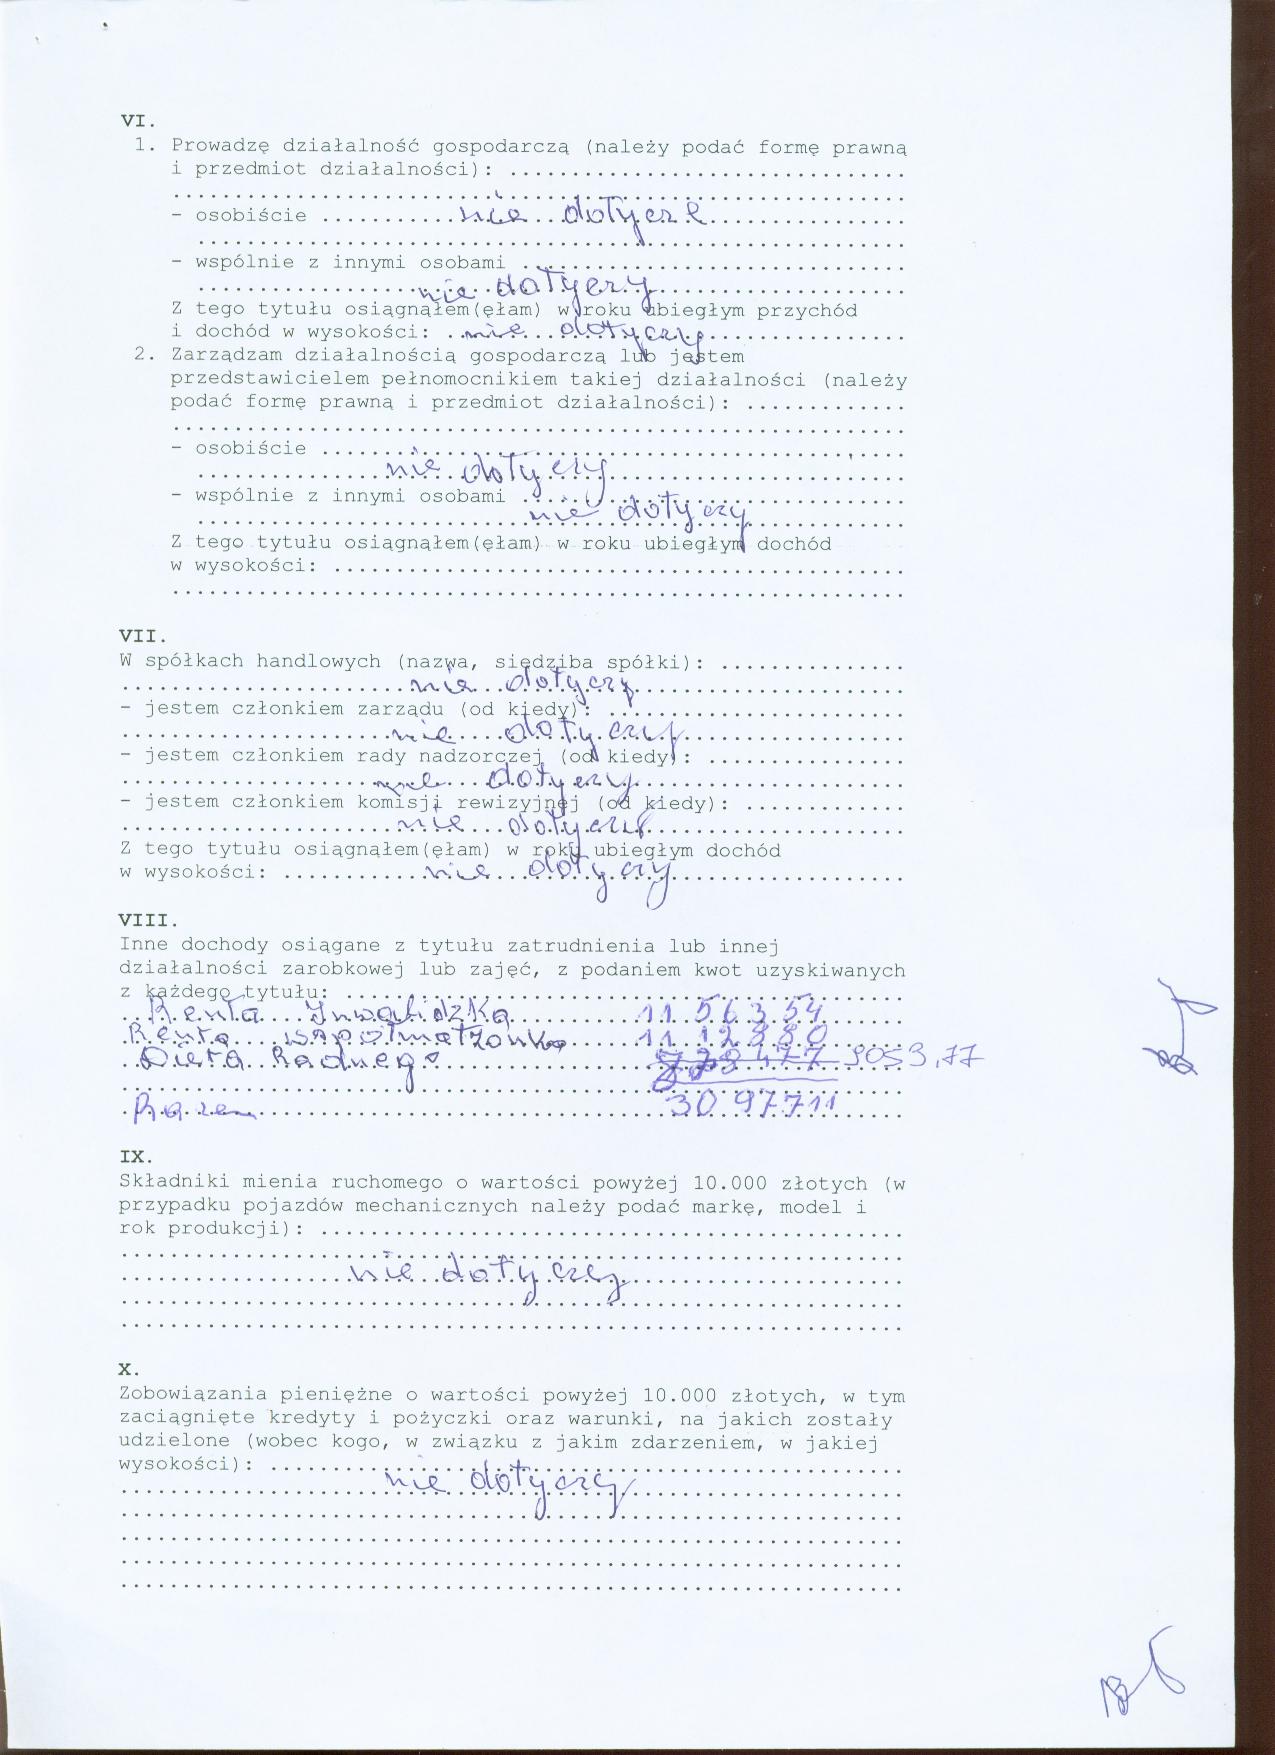 VI.
1. Prowadzę działalność gospodarczą (należy podać formę prawną
i przedmiot działalności): ................................
...........................................................
- osobiście ...........nie...dotyczy................
...........................................................
- wspólnie z innymi osobami ...............................
..................nie dotyczy....................
Z tego tytułu osiągnąłem(ęłam) w roku ubiegłym przychód
i dochód w wysokości: ..nie...dotyczy................
2. Zarządzam działalnością gospodarczą lub jestem
przedstawicielem pełnomocnikiem takiej działalności (należy
podać formę prawną i przedmiot działalności): .............
...........................................................
- osobiście ...............................................
...............nie dotyczy........................
- wspólnie z innymi osobami ...............................
...........................nie dotyczy.............
Z tego tytułu osiągnąłem(ęłam) w roku ubiegłym dochód
w wysokości: ..............................................
...........................................................
VII.
W spółkach handlowych (nazwa, siedziba spółki): ...............
.......................nie...dotyczy......................
- jestem członkiem zarządu (od kiedy): ........................
......................nie....dotyczy..................
- jestem członkiem rady nadzorczej (od kiedy): ................
.....................nie...dotyczy......................
- jestem członkiem komisji rewizyjnej (od kiedy): .............
......................nie...dotyczy.....................
Z tego tytułu osiągnąłem(ęłam) w roku ubiegłym dochód
w wysokości: ............nie...dotyczy...................
VIII.
Inne dochody osiągane z tytułu zatrudnienia lub innej
działalności zarobkowej lub zajęć, z podaniem kwot uzyskiwanych
z każdego tytułu: .............................................
..Renta....Inwalidzka..........11 563 54......
.Renta....współmałżonka......11 128 80......
..Dieta..Radnego................ 9053,77
...............................................................
.Razem.................................30 977 11.....
IX.
Składniki mienia ruchomego o wartości powyżej 10.000 złotych (w
przypadku pojazdów mechanicznych należy podać markę, model i
rok produkcji): ...............................................
...............................................................
..................nie...dotyczy......................
...............................................................
...............................................................
X.
Zobowiązania pieniężne o wartości powyżej 10.000 złotych, w tym
zaciągnięte kredyty i pożyczki oraz warunki, na jakich zostały
udzielone (wobec kogo, w związku z jakim zdarzeniem, w jakiej
wysokości): ...................................................
.....................nie dotyczy......................
...............................................................
...............................................................
...............................................................
...............................................................